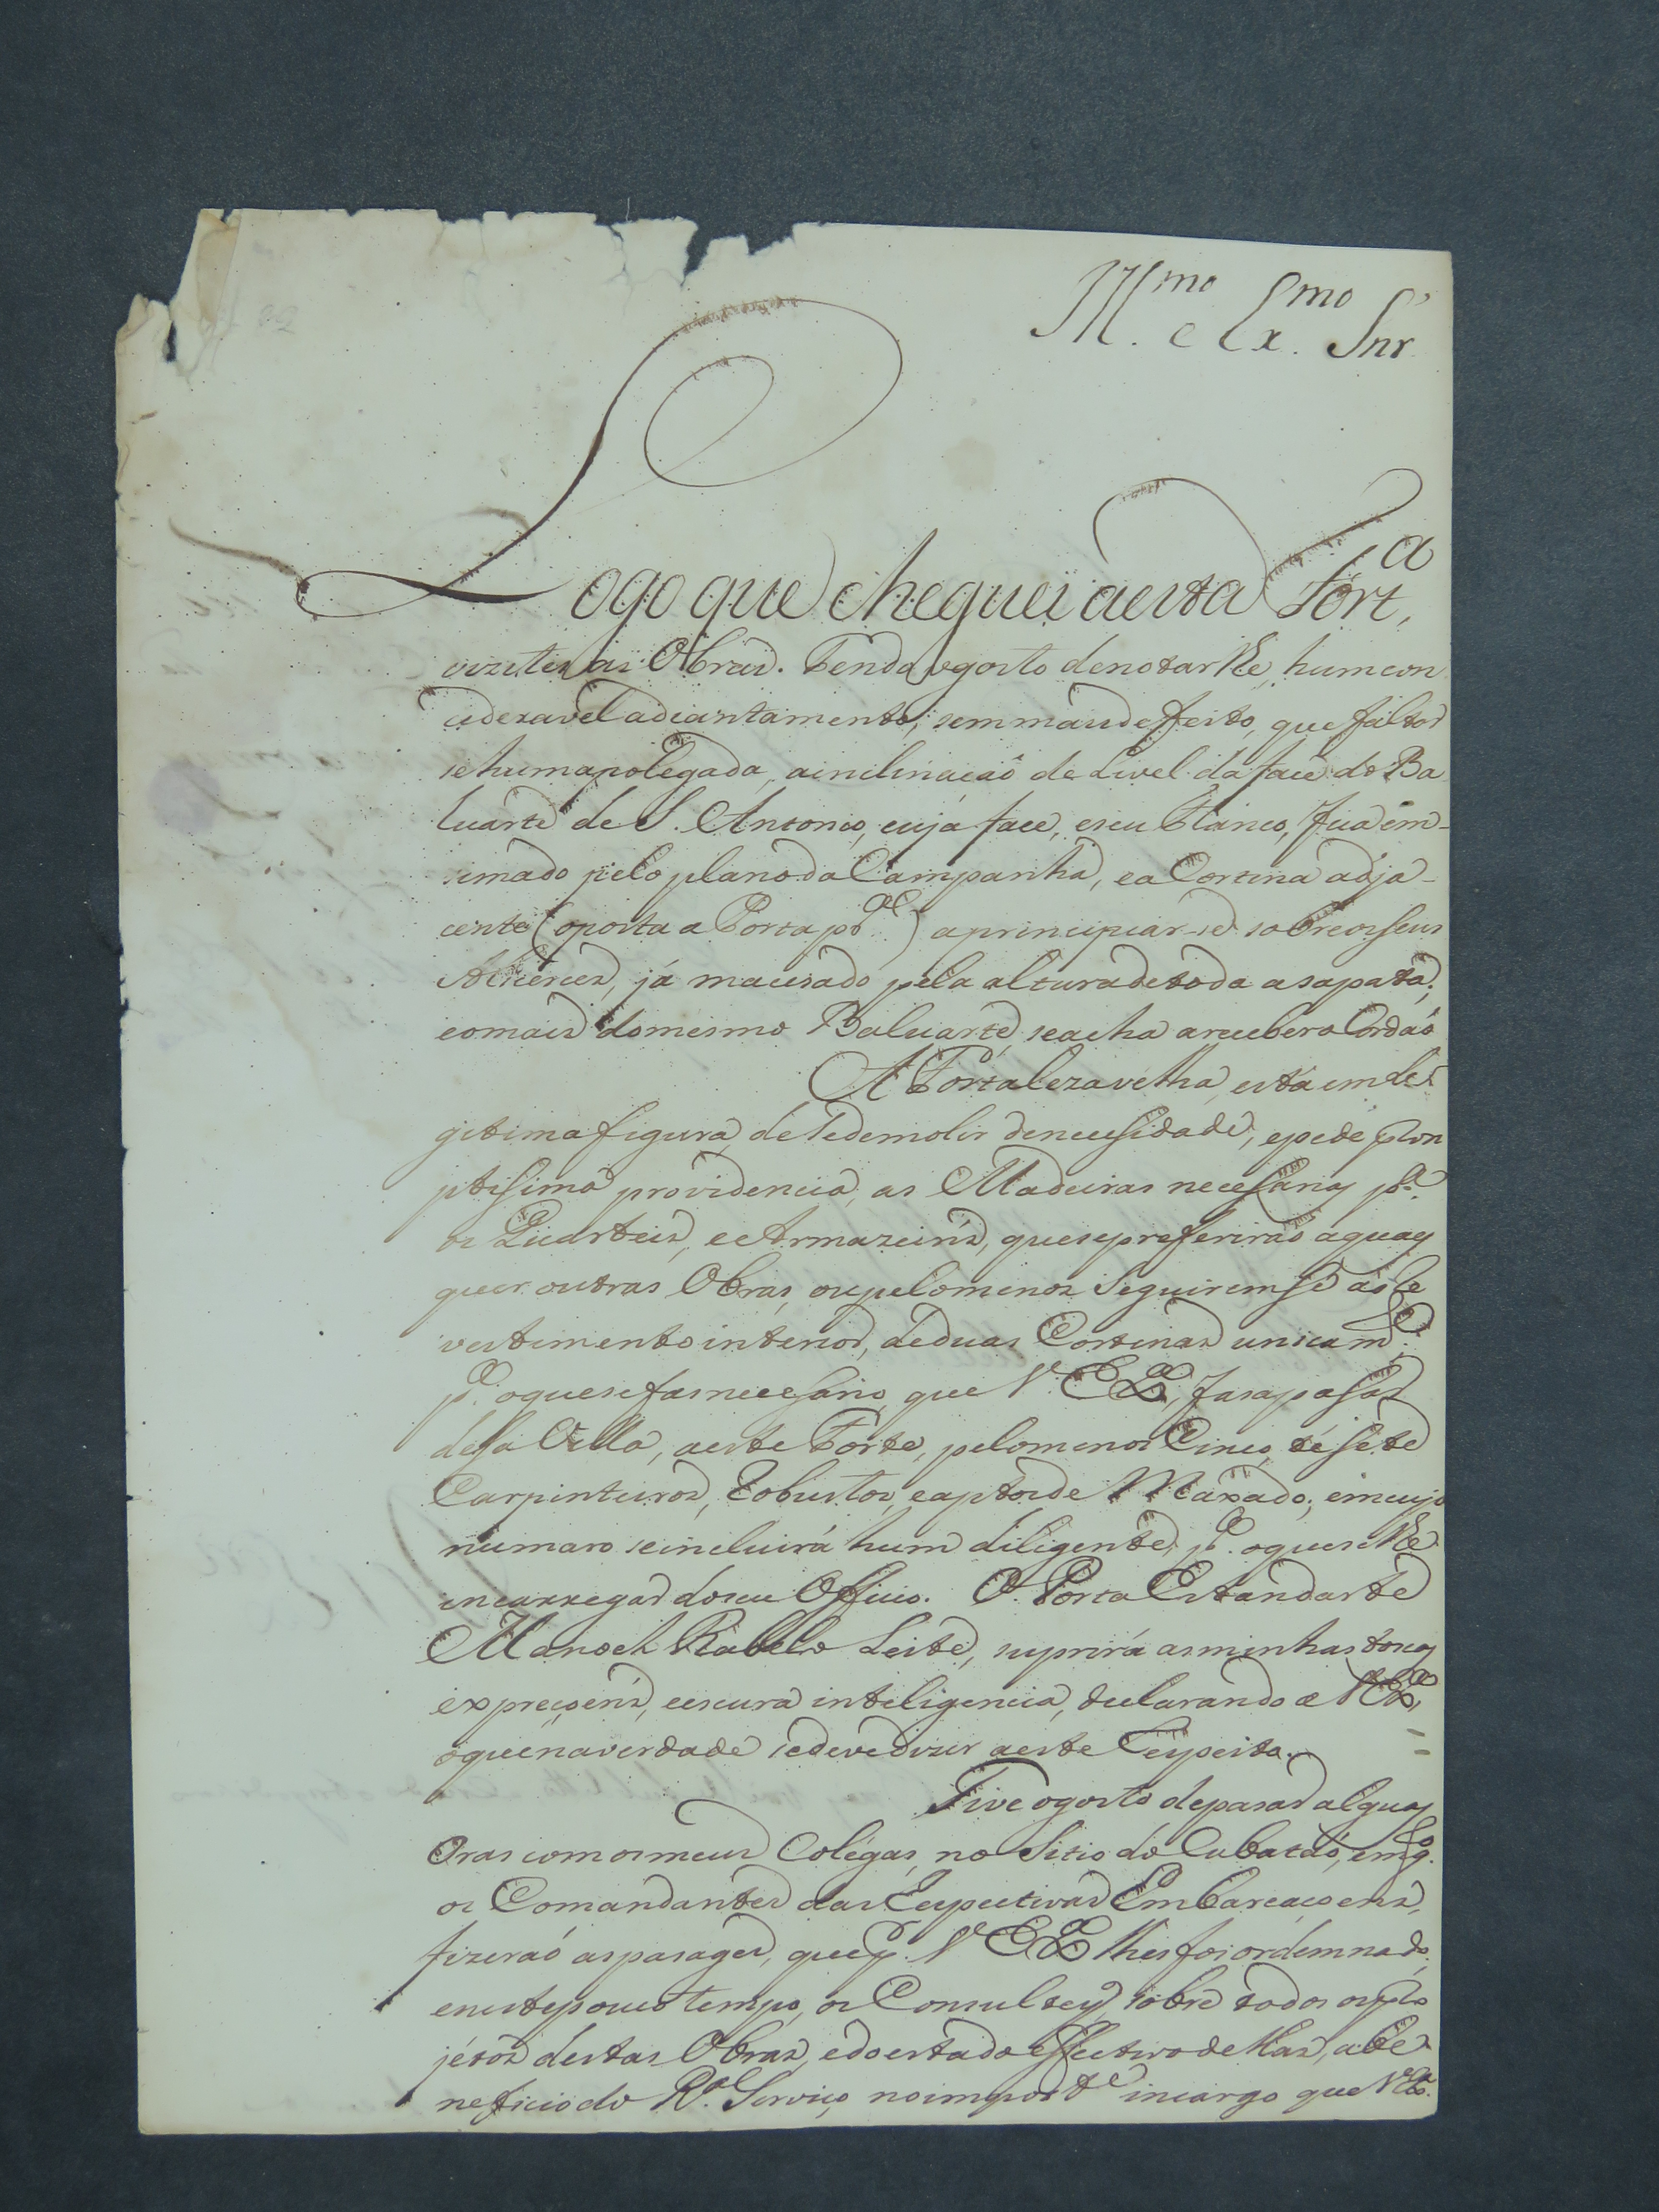 Ill.mo e Ex.mo Snr
Logo que cheguei a esta Fort.a,
vizitei as Obras. Tendo o gosto denotarlhe, hum con
cideravel adiantamento, sem mais defeito, que faltar
se huma polegada, a inclinaçaõ de Livel da face do Ba
luarte de S. Antonio, cuja face, e seu Flanco, fica em-
simado pelo plano da Campanha, e a Cortina adja-
cente (oposta a Porta p.al) a principiar-se sobre os seus
Alicerces, já macisado pela altura de toda a sapata;
e o mais do mesmo Baluarte, se acha a receber o Cordaõ
A Fortaleza velha, está em le
gitima figura, de se demolir de necessidade, e pede pron
ptissima providencia, as Madeiras necessarias p.a
os Quarteis, e Armazeins, que se prefferiraõ a quaes
quer outras Obras, ou pelo menos seguiremse ao Re
vestimento interior, de duas Cortinas unicam.e;
p.a o que se fas necessario, que V. Ex.a, fasa pasar
dessa Villa, a este Forte, pelo menos Cinco, té séte
Carpinteiros, Robustos, e aptos de Maxado; em cujo
numaro se incluirá hum diligente, p.a o que se lhe
incarregar do seu Officio. O Porta Estandarte
Manoel Rabelo Leite, suprirá as minhas toscas
expreçoens, e escura inteligencia, declarando a V. Ex.a,
o que na verdade se deve dizer a este Respeito.
Tive o gosto de pasar algũas
Oras com os meus Colégas, no Sitio do Cubataõ, em q.
os Comandantes das Respectivas Embarcaçoens,
fizeraõ as pasages, que p.r V. Ex.a lhes foi ordemnado,
e neste pouco tempo, os Consultey, sobre todos os pro
jétos destas Obras, e do estado effectivo dellas, a be
neficio do R.al Serviço, no import.e incargo que V. Ex.a